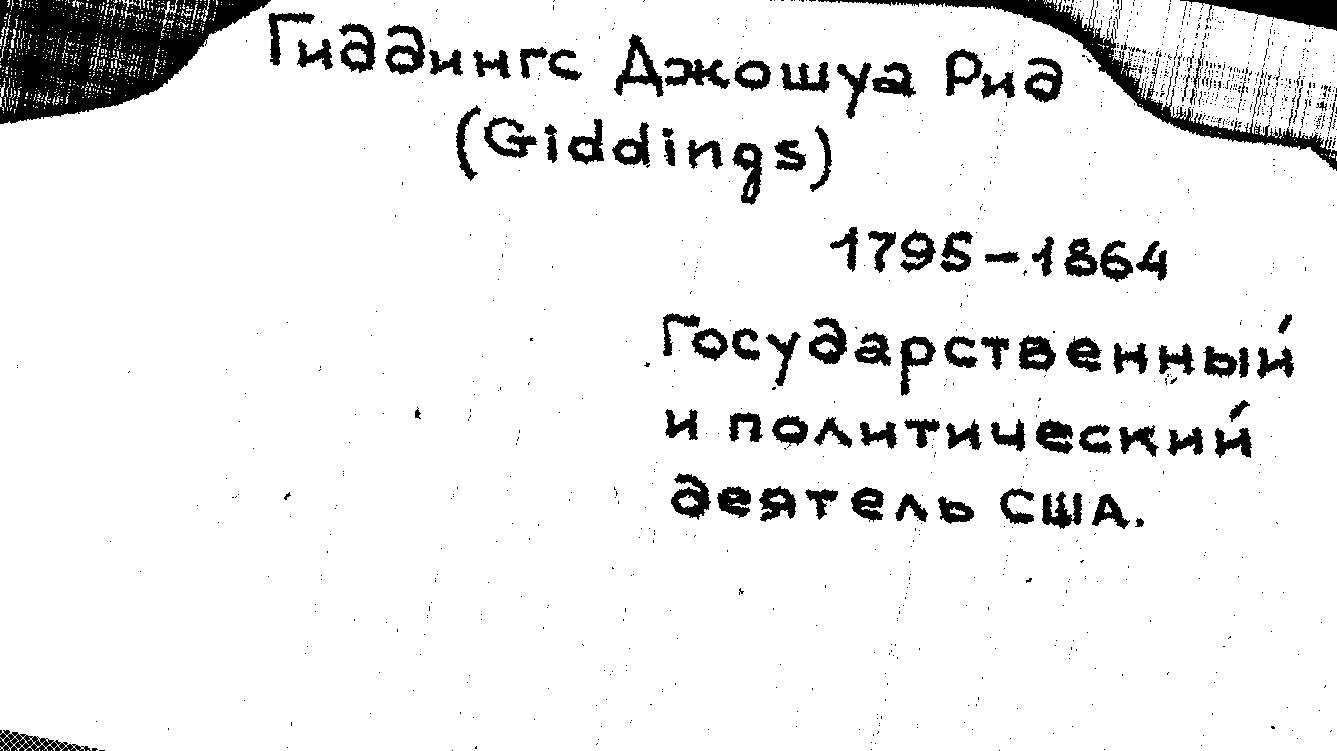 Гиддингс Джошуа Рид
(Giddings)
1795-1864
Государственный
и политический
деятель США.